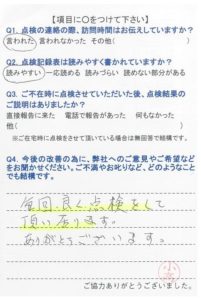 【項目に○をつけて下さい】
Q1. 点検の連絡の際、訪問時間はお伝えしていますか?
言われた 言われなかった その他( )
Q2. 点検記録表は読みやすく書かれていますか?
読みやすい 一応読める 読みづらい 読めない部分がある
Q3. ご不在時に点検させていただいた後、点検結果の
ご説明はありましたか?
直接報告に来た 電話で報告があった 何もなかった
他( )
※ご在宅時に点検をさせて頂いている場合は無回答で結構です。
Q4. 今後の改善の為に、弊社へのご意見やご希望など
をお聞かせください。ご不満やお叱りなど、どのようなこと
でも結構です。
毎回、良く点検をして
頂い居ります。
ありがとうございます。
ご協力ありがとうございました。